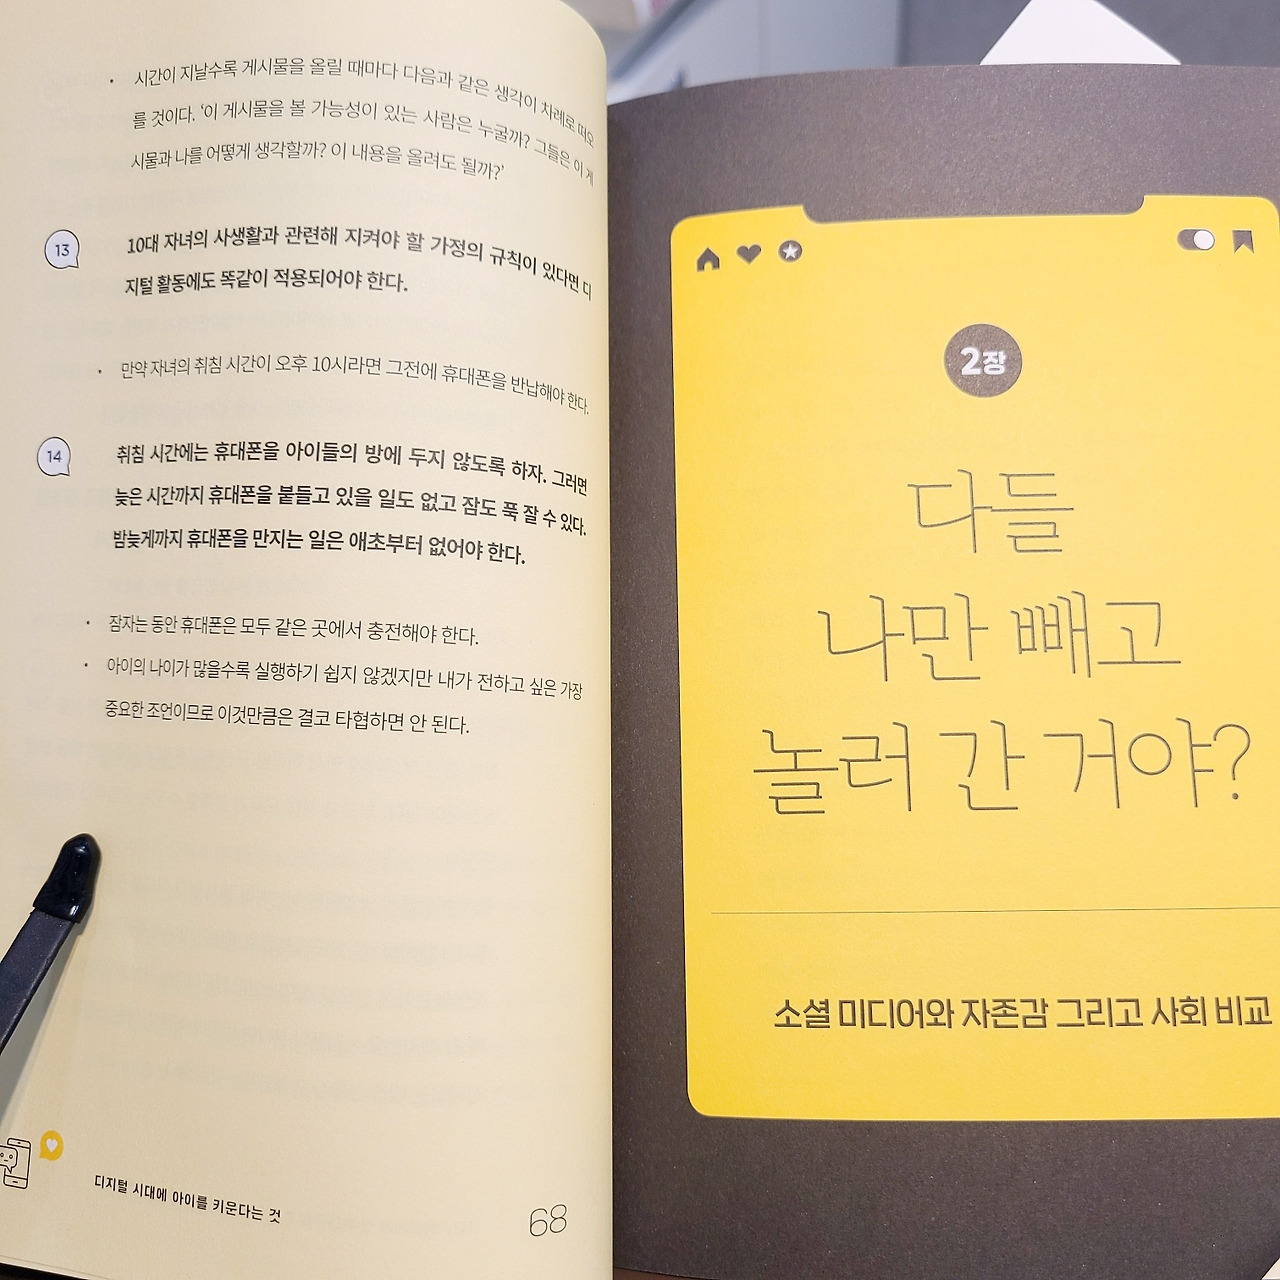 · 시간이 지날수록 게시물을 올릴 때마다 다음과 같은 생각이 차례로 떠오
를 것이다. ‘이 게시물을 볼 가능성이 있는 사람은 누굴까? 그들은 이 게
시물과 나를 어떻게 생각할까? 이 내용을 올려도 될까?’
13 10대 자녀의 사생활과 관련해 지켜야 할 가정의 규칙이 있다면 디
지털 활동에도 똑같이 적용되어야 한다.
· 만약 자녀의 취침 시간이 오후 10시라면 그전에 휴대폰을 반납해야 한다.
14 취침 시간에는 휴대폰을 아이들의 방에 두지 않도록 하자. 그러면
늦은 시간까지 휴대폰을 붙들고 있을 일도 없고 잠도 푹 잘 수 있다.
밤늦게까지 휴대폰을 만지는 일은 애초부터 없어야 한다.
· 잠자는 동안 휴대폰은 모두 같은 곳에서 충전해야 한다.
· 아이의 나이가 많을수록 실행하기 쉽지 않겠지만 내가 전하고 싶은 가장
중요한 조언이므로 이것만큼은 결코 타협하면 안 된다.
디지털 시대에 아이를 키운다는 것
68
2장
다들
나만 빼고
놀러 간 거야?
소셜 미디어와 자존감 그리고 사회 비교